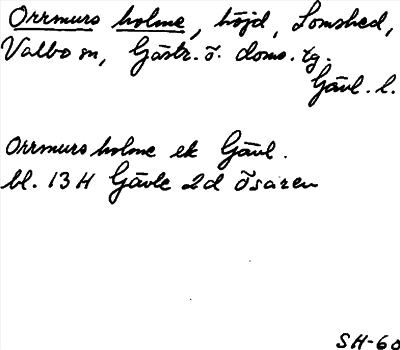 Orrmurs holme, höjd, Lomshed,
Valbo sn, Gästr. ö. doms. tg.
Gävl. l.
Orrmurs holme ek Gävl.
bl. 13 H Gävle 2d Ösaren
SH-60